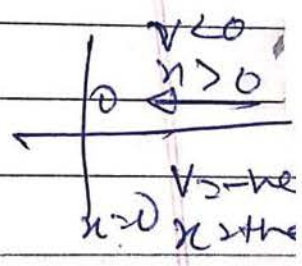 v < 0
x > 0
0
V = -ve
x = 0 x = +ve